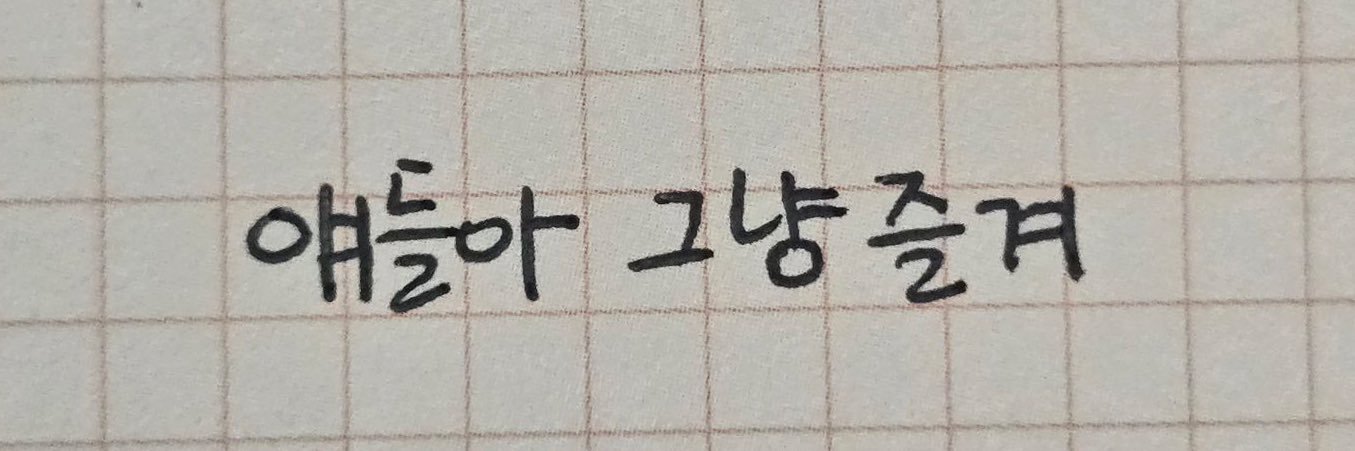 얘들아 그냥 즐겨